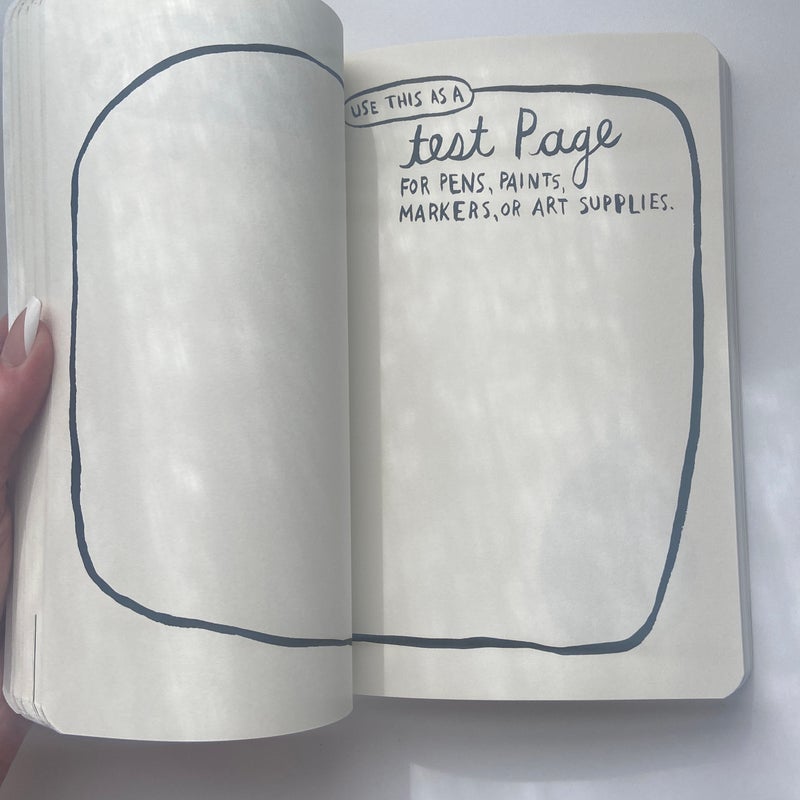 USE THIS AS A
test Page
FOR PENS, PAINTS,
MARKERS, OR ART SUPPLIES.